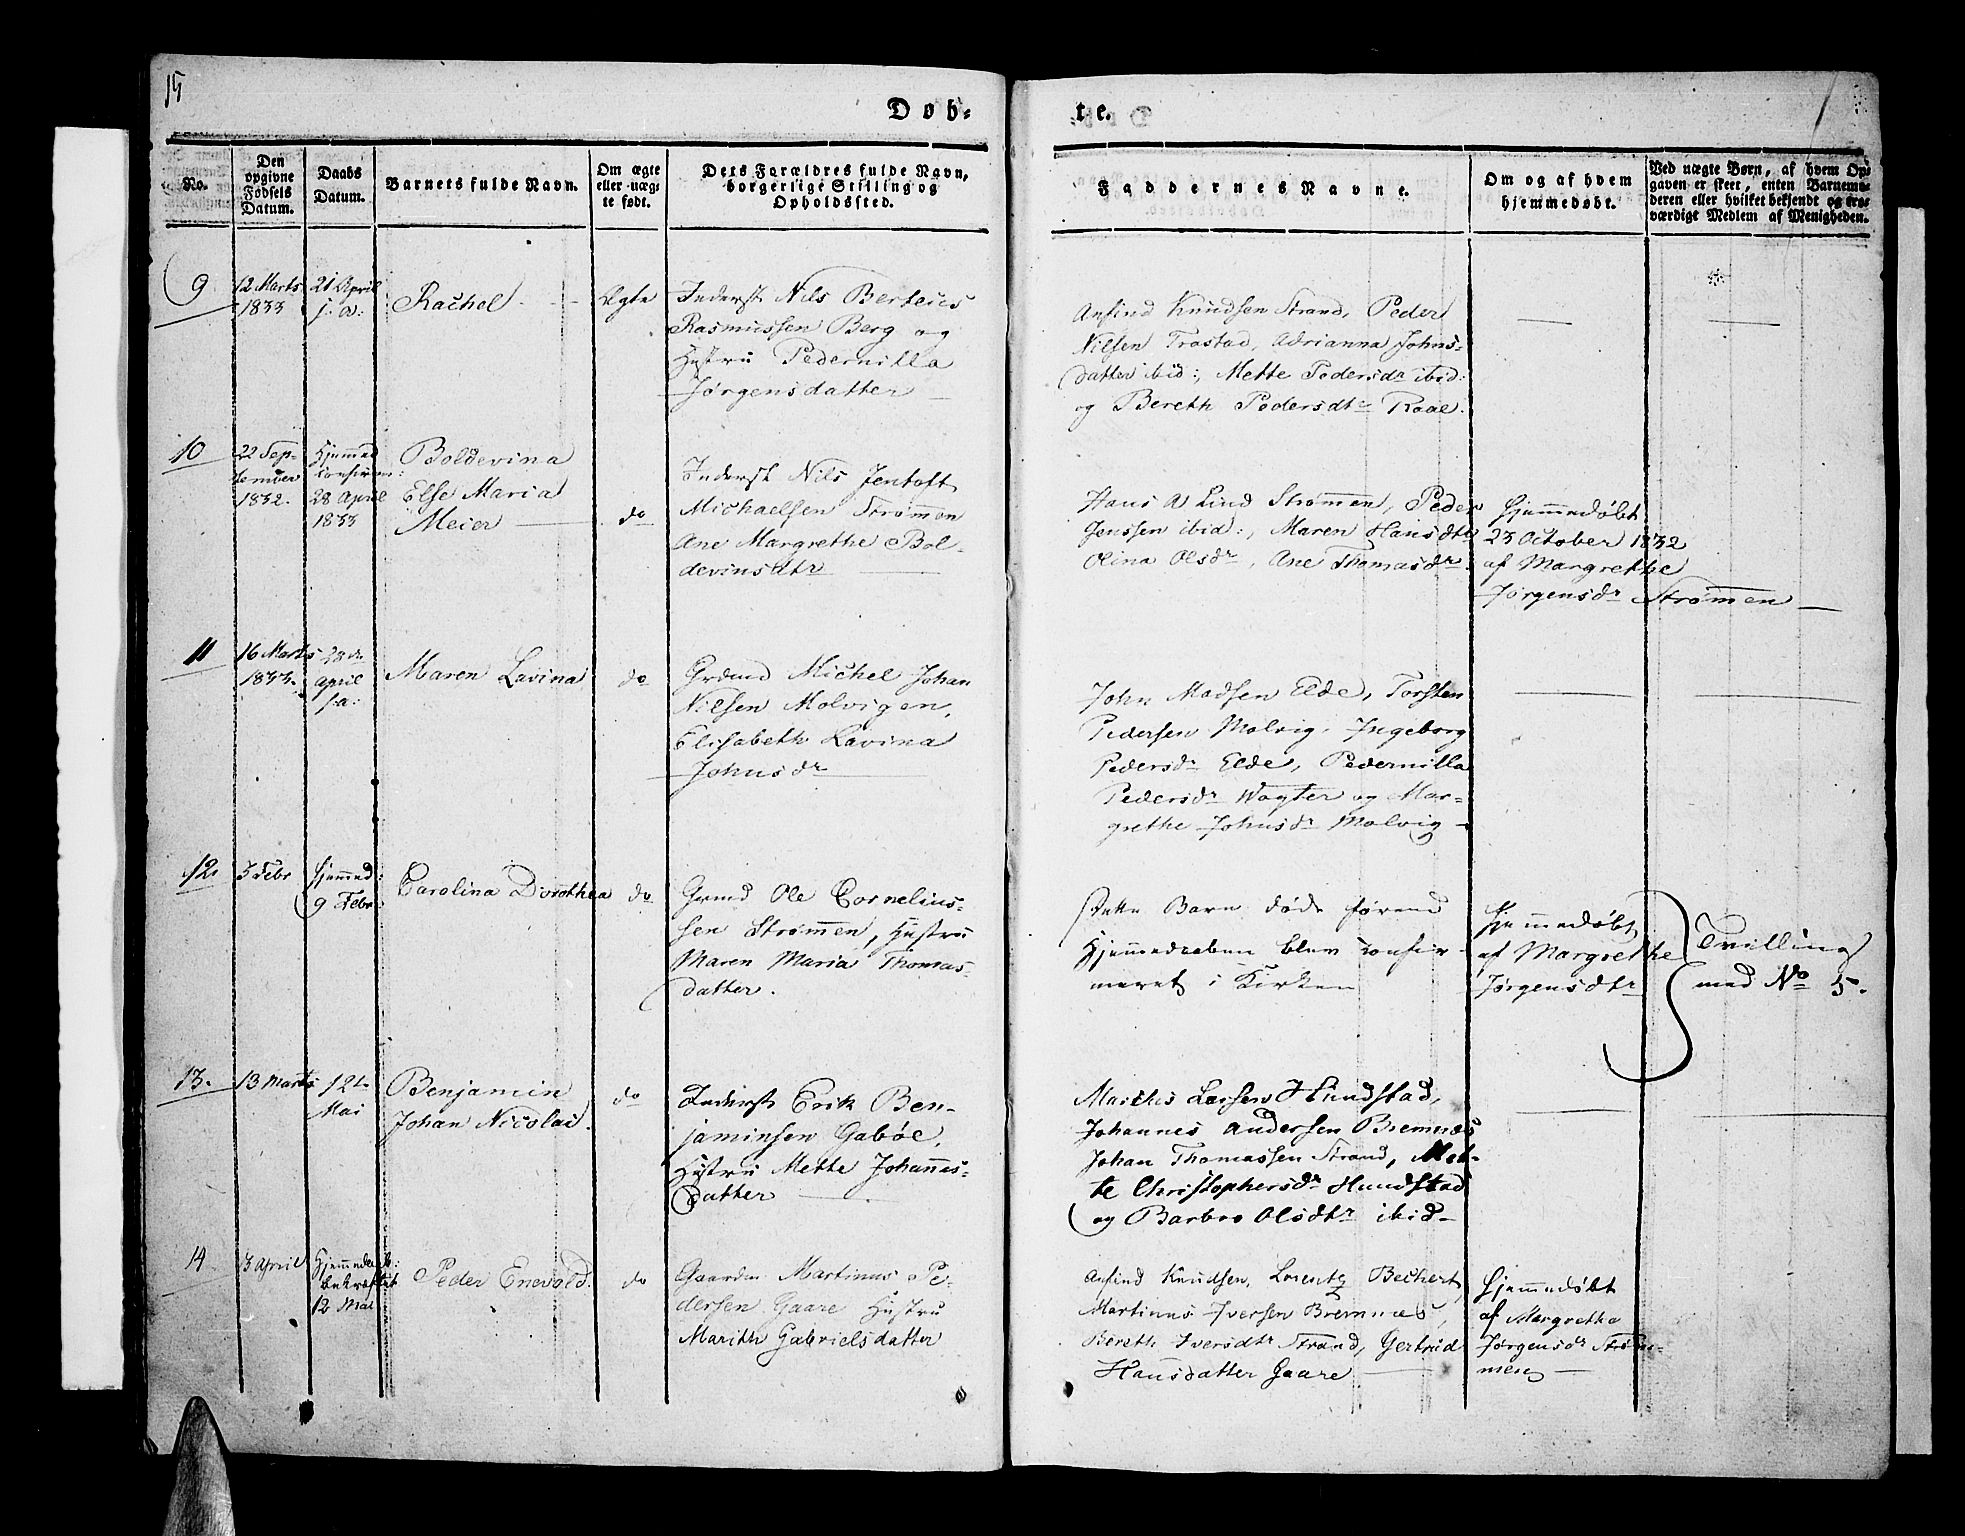 15
Døb-
te.
No.
Den
opgivne
Fødsels
Datum.
Daabs
Datum.
Barnets fulde Navn.
Om ægte
eller uæg-
te født.
Dets Forældres fulde Navn,
borgerlige Stilling og
Opholdssted.
Faddernes Navne.
Om og af hvem
hjemmedøbt.
Ved uægte Børn, af hvem Op-
gaven er skeet, enten Barnemo-
deren eller hvilket bekjendt og tro-
værdigt Medlem af Menigheden.
9
12 Marts
1833
21 April
s. a.
Rachel
Ægte
Inderst Nils Berteus
Rasmussen Berg og
Hustru Pedernilla
Jørgensdatter
Anfind Knudsen Strand, Peder
Nilsen Trastad, Adrianna Johns-
datter ibid:, Mette Pedersdr ibid:
og Bereth Pedersdtr Roae.
10
22 Sep-
tember
1832.
Hjemmed
confirm:
28 April
1833
Boldevina
Else Maria
Meier
do
Inderst Nils Jentoft
Michaelsen Strømmen
Ane Margrethe Bol-
devinsdtr
Hans A Lind Strømmen, Peder
Jenssen ibid:, Maren Hansdtr
Olina Olsdr, Ane Thomasdr.
Hjemmedøbt
23 October 1832
af Margrethe
Jørgensdr Strømmen
11
16 Marts
1833.
28 de
April
s. a:
Maren Lavina
do
Grdmd Michel Johan
Nilsen Molvigen,
Elisabeth Lavina
Johnsdr
John Madsen Elde, Torsten
Pedersen Molvig, Ingeborg
Pedersdr Elde, Pedernilla
Pedersdr Wogter og Mar-
grethe Johnsdr Molvig
12
3 Febr
Hjemmed:
9 Febr.
Carolina Dorothea
do
Grmd Ole Cornelius-
sen Strømmen, Hustru
Maren Maria Thomas-
datter.
Dette Barn døde førend
Hjemmedaaben blev confir-
meret i Kirken
Hjemmedøbt
af Margrethe
Jørgensdtr
Tvilling
med No 5.
13.
13 Marts
12te
Mai
Benjamin
Johan Nicolai.
do
Inderst Erik Ben-
jaminsen Gabøe,
Hustru Mette Johannes-
datter
Mathis Larsen Hundstad,
Johannes Andersen Bremnæs
Johan Thomassen Strand, Met-
te Christophersdr Hundstad
og Barbro Olsdtr ibid
14
3 April
Hjemmedaab:
bekræftet
12 Mai
Peder Enevold.
do
Gaardm Martinus Pe-
dersen Gaare Hustru
Marith Gabrielsdatter
Anfind Knudsen, Lorentz Bechert,
Martinus Iversen Bremnæs,
Bereth Iversdtr Strand, Gertrud
Hansdatter Gaare
Hjemmedøbt
af Margrethe
Jørgensdr Strøm-
men